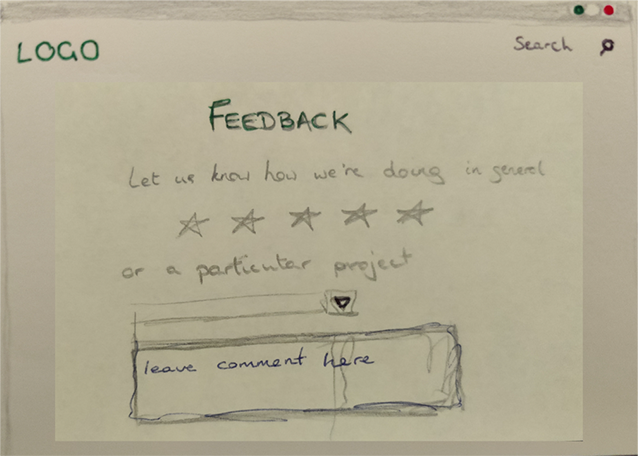 LOGO
Search
FEEDBACK
Let us know how we're doing in general
or a particular project
leave comment here